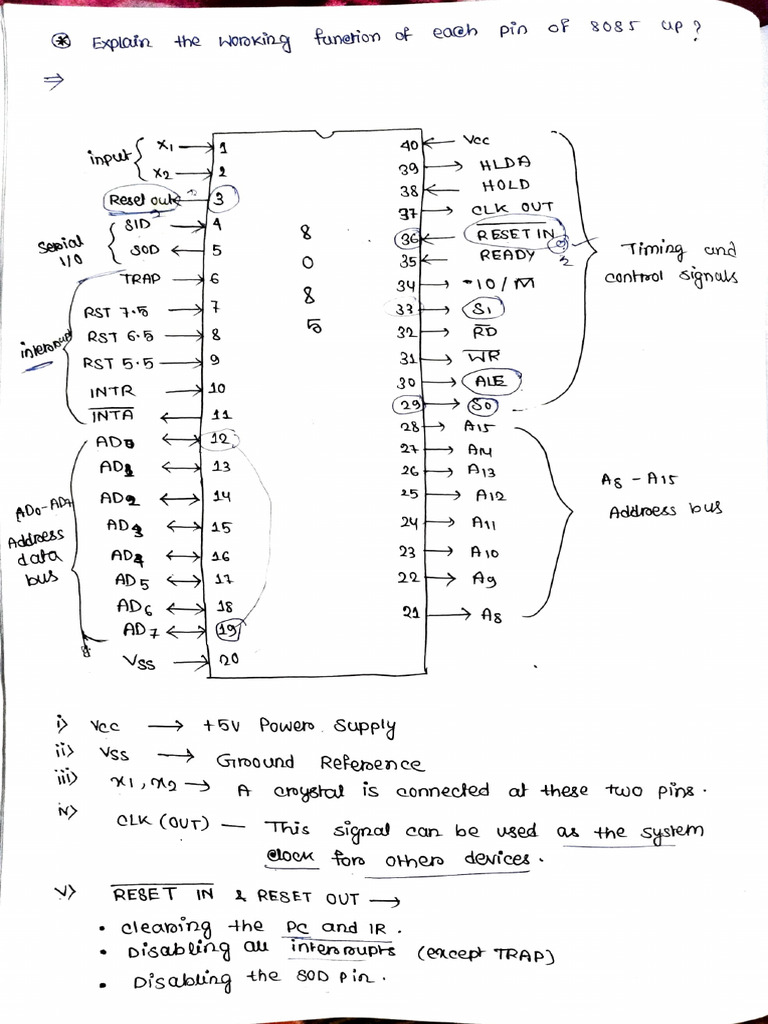 ⊛ Explain the working function of each pin of 8085 up?
⇒
input { X1 → 1
X2 → 2
Reset out ← 3
Serial I/O { SID → 4
SOD ← 5
interrupt { TRAP → 6
RST 7.5 → 7
RST 6.5 → 8
RST 5.5 → 9
INTR → 10
I̅N̅T̅A̅ ← 11
AD0-AD7 Address data bus { AD0 ↔ 12
AD1 ↔ 13
AD2 ↔ 14
AD3 ↔ 15
AD4 ↔ 16
AD5 ↔ 17
AD6 ↔ 18
AD7 ↔ 19
8
VSS → 20
8
0
8
5
40 ← Vcc
39 → HLDA
38 ← HOLD
37 → CLK OUT
36 ← R̅E̅S̅E̅T̅ I̅N̅
2
35 ← READY
34 → IO/M̅
33 → S1
32 → R̅D̅
31 → W̅R̅
30 → ALE
29 → S0
} Timing and
control signals
28 → A15
27 → A14
26 → A13
25 → A12
24 → A11
23 → A10
22 → A9
21 → A8
} A8 - A15
Address bus
i) Vcc → +5V Power Supply
ii) VSS → Ground Reference
iii) x1, x2 → A crystal is connected at these two pins.
iv) CLK (OUT) — This signal can be used as the system
clock for others devices.
v) R̅E̅S̅E̅T̅ I̅N̅ & RESET OUT →
• clearing the PC and IR.
• Disabling all interrupts (except TRAP)
• Disabling the SOD pin.